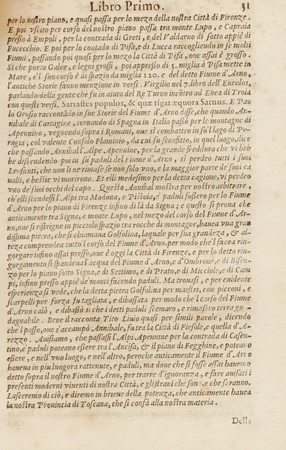 Libro Primo. 31
per lo nostro piano, e quasi passa per lo mezo della nostra Città di Firenze.
E poi vscito per corso del nostro piano passa tra monte Lupo, e Capraia
presso a Empoli, per la contrada di Greti, e del Valdarno di sotto appiè di
Fucecchio. E poi per lo contado di Pisa, e di Lucca raccogliendo in se molti
Fiumi, passando poi quasi per lo mezo la Città di Pisa, oue assai è grosso.
Si che porta Galee, e legni grossi, poi appresso di 5. miglia à Pisa mette in
Mare, e'l suo corso è di spazio da miglia 120. e del detto Fiume d'Arno,
l'antiche Storie fanno menzione in versi. Virgilio nel 7. libro dell'Eneidos,
parlando della gente che fu in aiuto del Re Turno incontro ad Enea di Troia
con questi versi. Sarrastes populos, & quæ rigat æquora Sarnus. E Pao
lo Orosio raccontando in sue Storie del Fiume d'Arno disse, che quando An-
nibale di Cartagine, tornando di Spagna in Italia passò per le montagne di
Apennino, vegnendo sopra i Romani, oue si combatteo in su'l lago di Pe-
rugia, col valente Consolo Flaminio, da cui fu sconfitto, in quel luogo, dice
che passando Annibal l'Alpe Apennine, per la grande freddura che vi heb
be discendendo poi in su paduli del Fiume d'Arno, si perdeo tutti i suoi
Leofanti, che non li ne rimase se non solo vno, e la maggior parte de' suoi ca
ualli, e bestie vi morirono. Et elli medesimo per la detta cagione, vi perdeo
vno de' suoi occhi del capo. Questo Annibal mostra per nostro arbitrare,
ch'elli scendesse l'Alpi tra Modona, e Pistoia, e paduli fossero per lo Fiume
d'Arno per lo piano di Firenze infino di là da Signa; e questo si prona che
anticamente tra Signa, e monte Lupo, nel mezo del corso del Fiume d'Ar-
no, oue si ristrigne in piccolo spazio tra rocche di montagne, hauea vna gran
dissima pietra, che si chiamaua Golfolina, laquale per sua grandeza, & al-
teza comprendea tutto lo corso del Fiume d'Arno, per modo che'l facea rin-
gorgare infino assai presso, oue è oggi la Città di Firenze, e per lo detto rin-
gorgamento si spandea l'acqua del Fiume d'Arno, e d'Ombrone, e di Bisen-
zo per lo piano sotto Signa, e di Settimo, e di Prato, e di Micciole, e di Cam
pi, infino presso appiè de' monti facendo paduli. Ma trouasi, e per euidente
esperienza si vede, che la detta pietra Golfolina per maestri, con picconi, e
scarpelli per forza fu tagliata, e dibassata per modo che'l corso del Fiume
d'Arno calò, e dibassò si che i detti paduli scemaro, e rimasero terre gua-
dagnabile. Bene il racconta Tito Liuio quasi per simili parole, dicendo
che'l passo, oue s'accampò Annibale, fu tra la Città di Fiesole, e quella d'A-
rezzo. Auisiamo, che passasse l'Alpi Apennine per la contrada di Casen-
tino, e paduli poteano essere tra l'Ancisa, & il piano di Fegghine, e potea es-
sere, e nell'vno luogo, e nell'altro, peroche anticamente il Fiume d'Arno
hauea in più luogora rattenute, e paduli, ma doue che si fosse assai hauemo
detto sopra il nostro Fiume d'Arno, per trarre d'ignoranza, e fare auisati i
presenti moderni viuenti di nostra Città, e gli strani che sono, e che saranno.
Lasceremo di ciò, e diremo in brieue della potenza, che anticamente hauea
la nostra Prouincia di Toscana, che si confà alla nostra materia.
Della